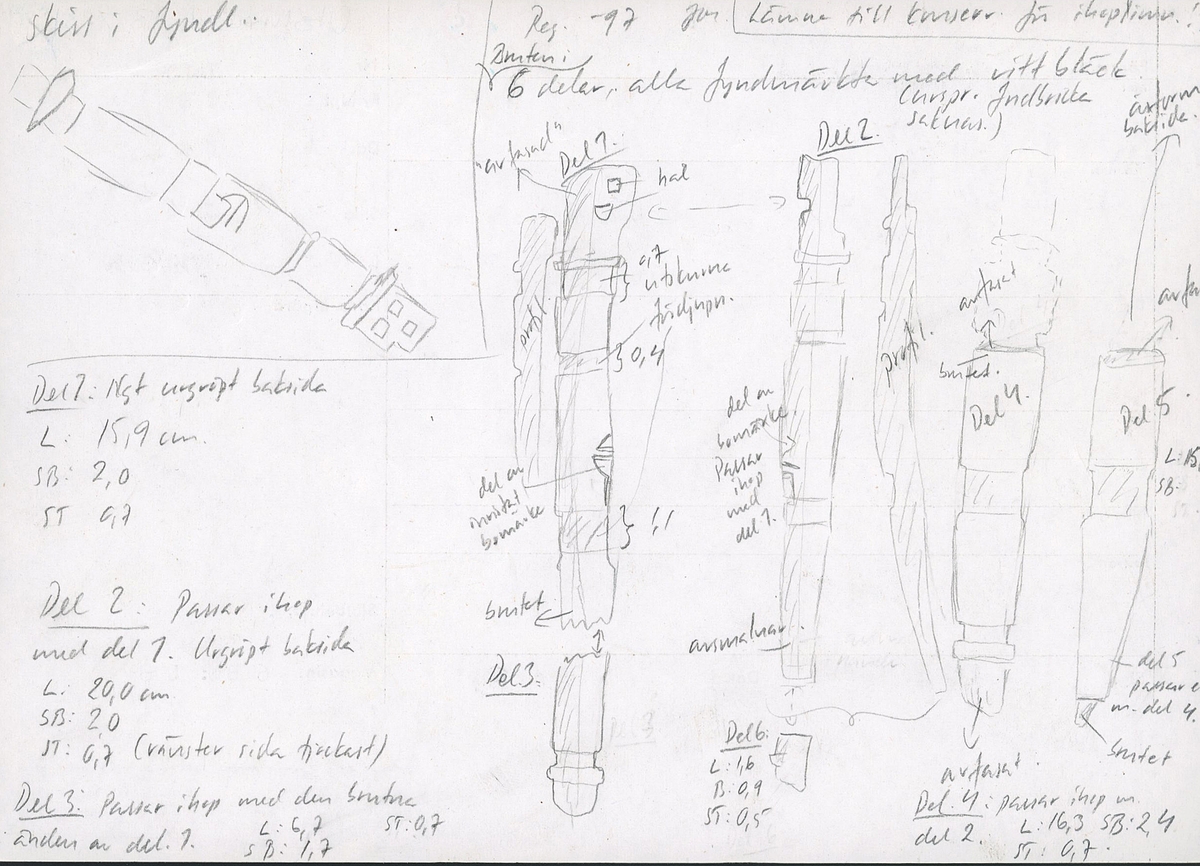 skiss i fyndl..
Reg. -97 Jon. Lämna till konserv. för ihoplimn.!
Bruten i
6 delar, alla fyndmärkta med vitt bläck
(urspr. fndbricka
saknas.)
"avfasad"
Del 1.
hål
0,7
fördjupn.
}0,4
profil
del av
inristat
bomärke
} 11
brutet
Del 3.
Del 2.
profil.
del av
bomärke.
Passar
ihop
med
del 1.
avsmalnar.
Del 6:
L: 1,6
B: 0,9
ST: 0,5
avfasat
brutet.
Del 4.
avfasat.
baksida.
Del 5
L: 15
SB:
del 5
passar
m. del 4.
brutet
Del 1: Ngt urgröpt baksida
L: 15,9 cm.
SB: 2,0
ST 0,7
Del 2: Passar ihop
med del 1. Urgröpt baksida
L: 20,0 cm
SB: 2,0
ST: 0,7 (vänster sida tjockast)
Del 3: Passar ihop med den brutna
änden av del. 1.
L: 6,7 ST: 0,7
SB: 1,7
Del. 4: passar ihop m.
del 2. L: 16,3 SB: 2,4
ST: 0,7.